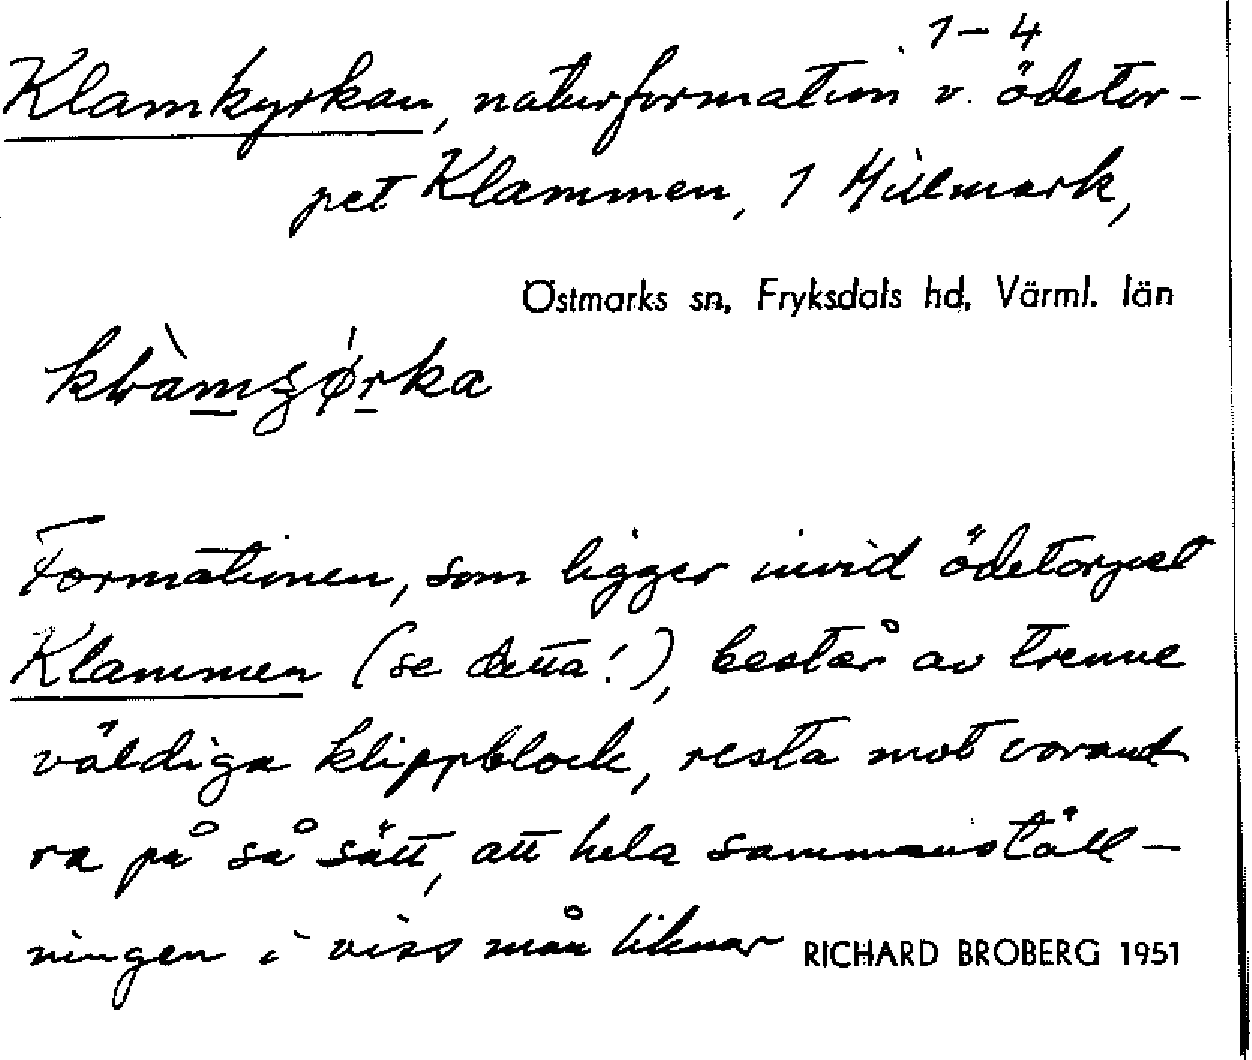 1-4
Klamkyrkan, naturformation v. ödetor-
pet Klammen, 1 Millmark,
Östmarks sn, Fryksdals hd, Värml. län
Formationen, som ligger invid ödetorpet
Klammen (se detta!), består av trenne
väldiga klippblock, resta mot varand
ra på så sätt, att hela sammanställ-
ningen i viss mån liknar
RICHARD BROBERG 1951